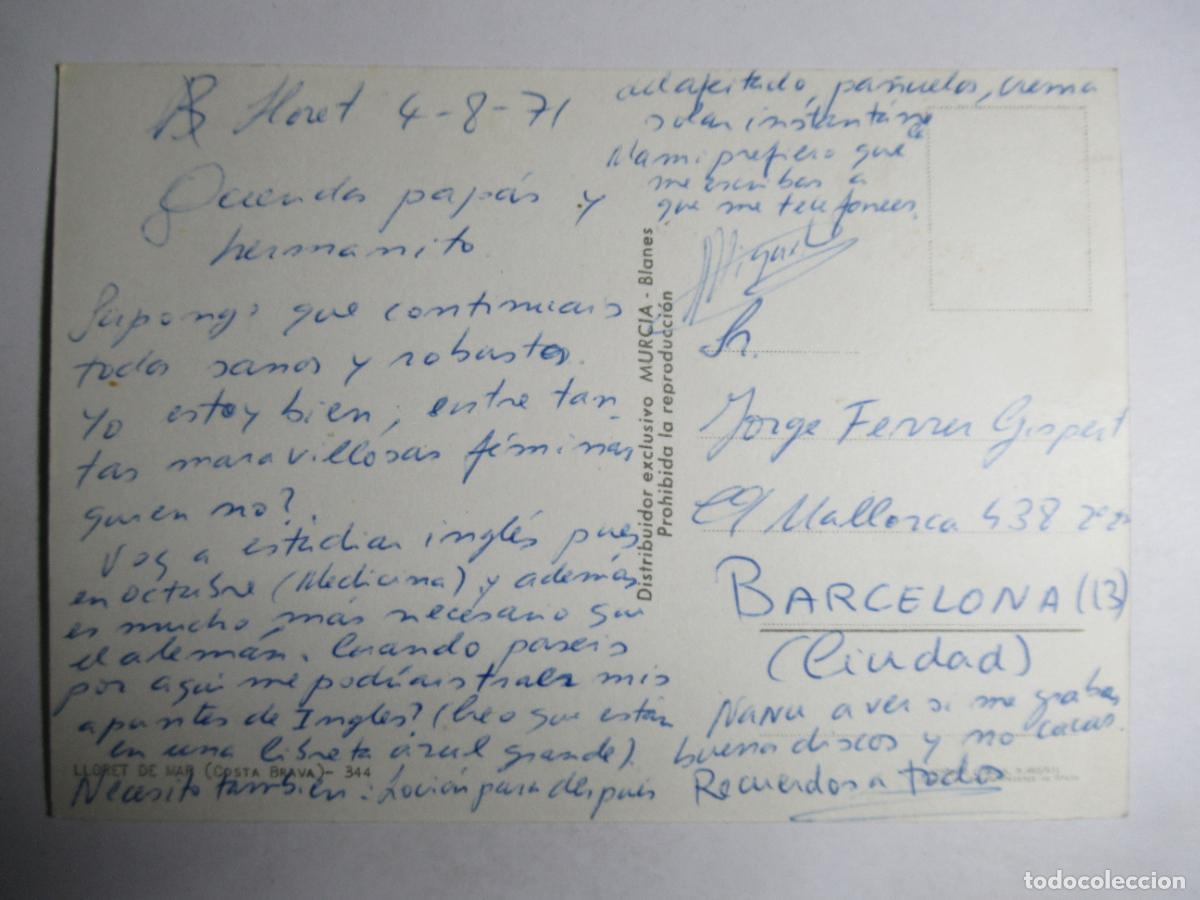 Lloret 4-8-71
Queridos papás y
hermanito
Supongo que continuais
todos sanos y robustos.
Yo estoy bien, entre tan-
tas maravillosas féminas
quien no?
Voy a estudiar inglés pues
en octubre (Medicina) y además
es mucho más necesario que
el alemán. Cuando paseis
por aqui me podríais traer mis
apuntes de Ingles? (Creo que están
en una libreta azul grande).
LLORET DE MAR (COSTA BRAVA) - 344
Necesito tambien: Loción para despues
adafeitado, pañuelos, crema
solar instantánea
Mami prefiero que
me escribas a
que me telefonees.
Miguel
Distribuidor exclusivo MURCIA - Blanes
Prohibida la reproducción
Sr.
Jorge Ferrer Gispert
C/ Mallorca 438
BARCELONA (13)
(Ciudad)
Nanu a ver si me grabas
buenos discos y no cacas.
Recuerdos a todos
todocoleccion